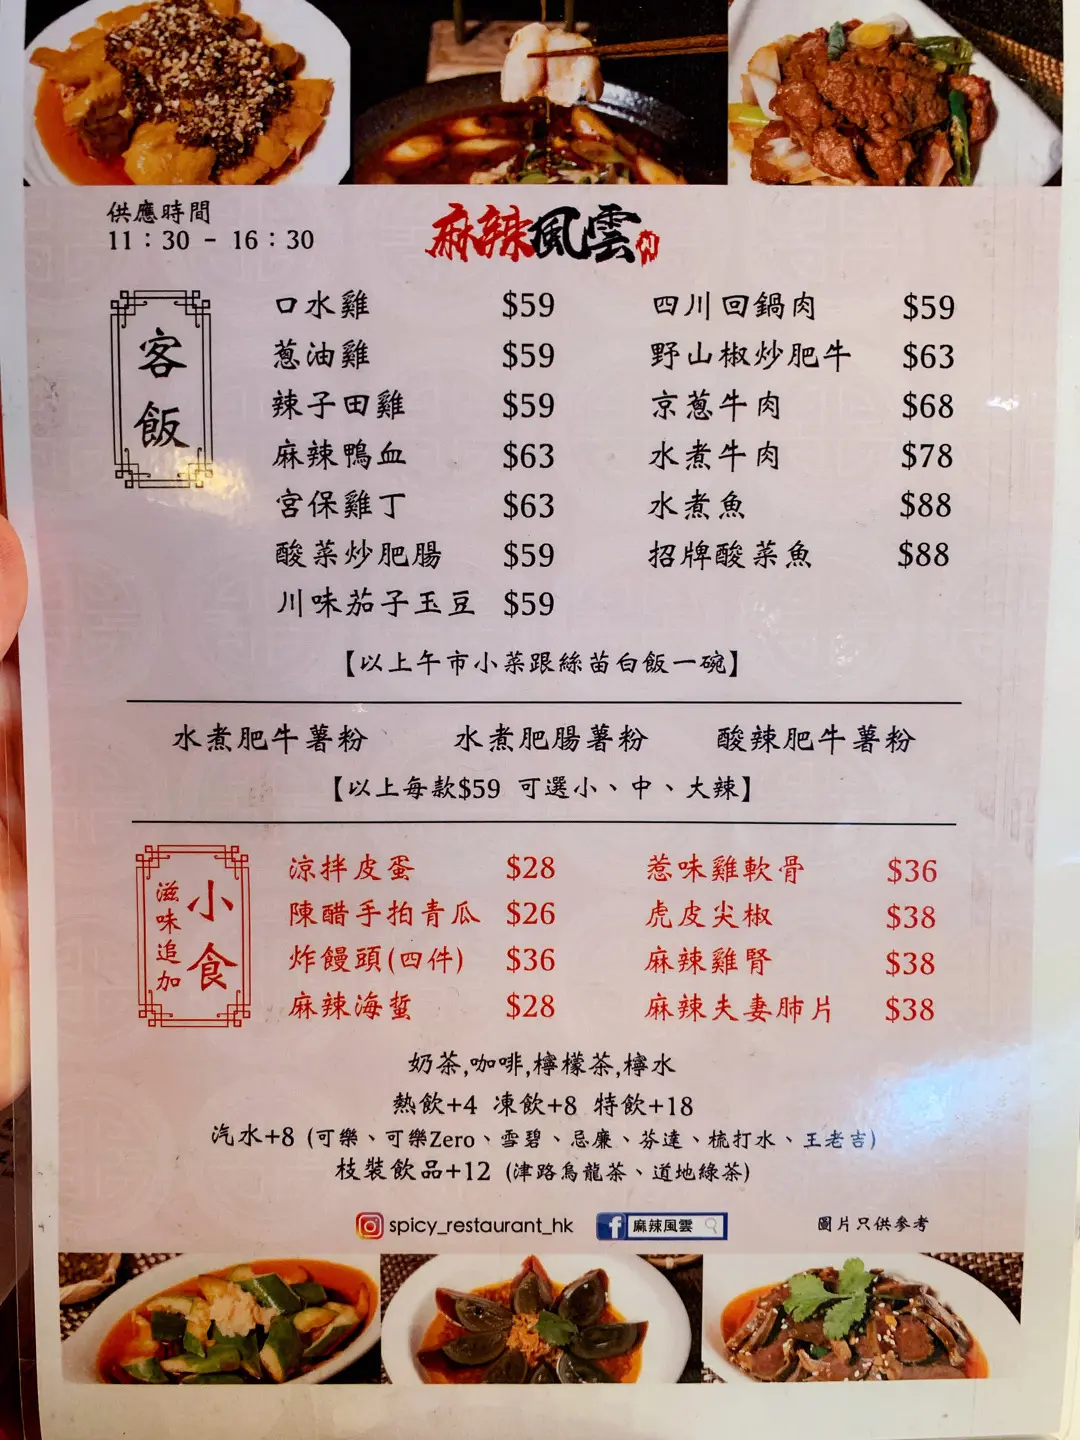 供應時間
11：30 - 16：30
麻辣風雲
客飯
口水雞 $59
蔥油雞 $59
辣子田雞 $59
麻辣鴨血 $63
宮保雞丁 $63
酸菜炒肥腸 $59
川味茄子玉豆 $59
四川回鍋肉 $59
野山椒炒肥牛 $63
京蔥牛肉 $68
水煮牛肉 $78
水煮魚 $88
招牌酸菜魚 $88
【以上午市小菜跟絲苗白飯一碗】
水煮肥牛薯粉 水煮肥腸薯粉 酸辣肥牛薯粉
【以上每款$59 可選小、中、大辣】
小食
滋味追加
涼拌皮蛋 $28
陳醋手拍青瓜 $26
炸饅頭(四件) $36
麻辣海蜇 $28
惹味雞軟骨 $36
虎皮尖椒 $38
麻辣雞腎 $38
麻辣夫妻肺片 $38
奶茶,咖啡,檸檬茶,檸水
熱飲+4 凍飲+8 特飲+18
汽水+8 (可樂、可樂Zero、雪碧、忌廉、芬達、梳打水、王老吉)
枝裝飲品+12 (津路烏龍茶、道地綠茶)
spicy_restaurant_hk
f 麻辣風雲
圖片只供參考